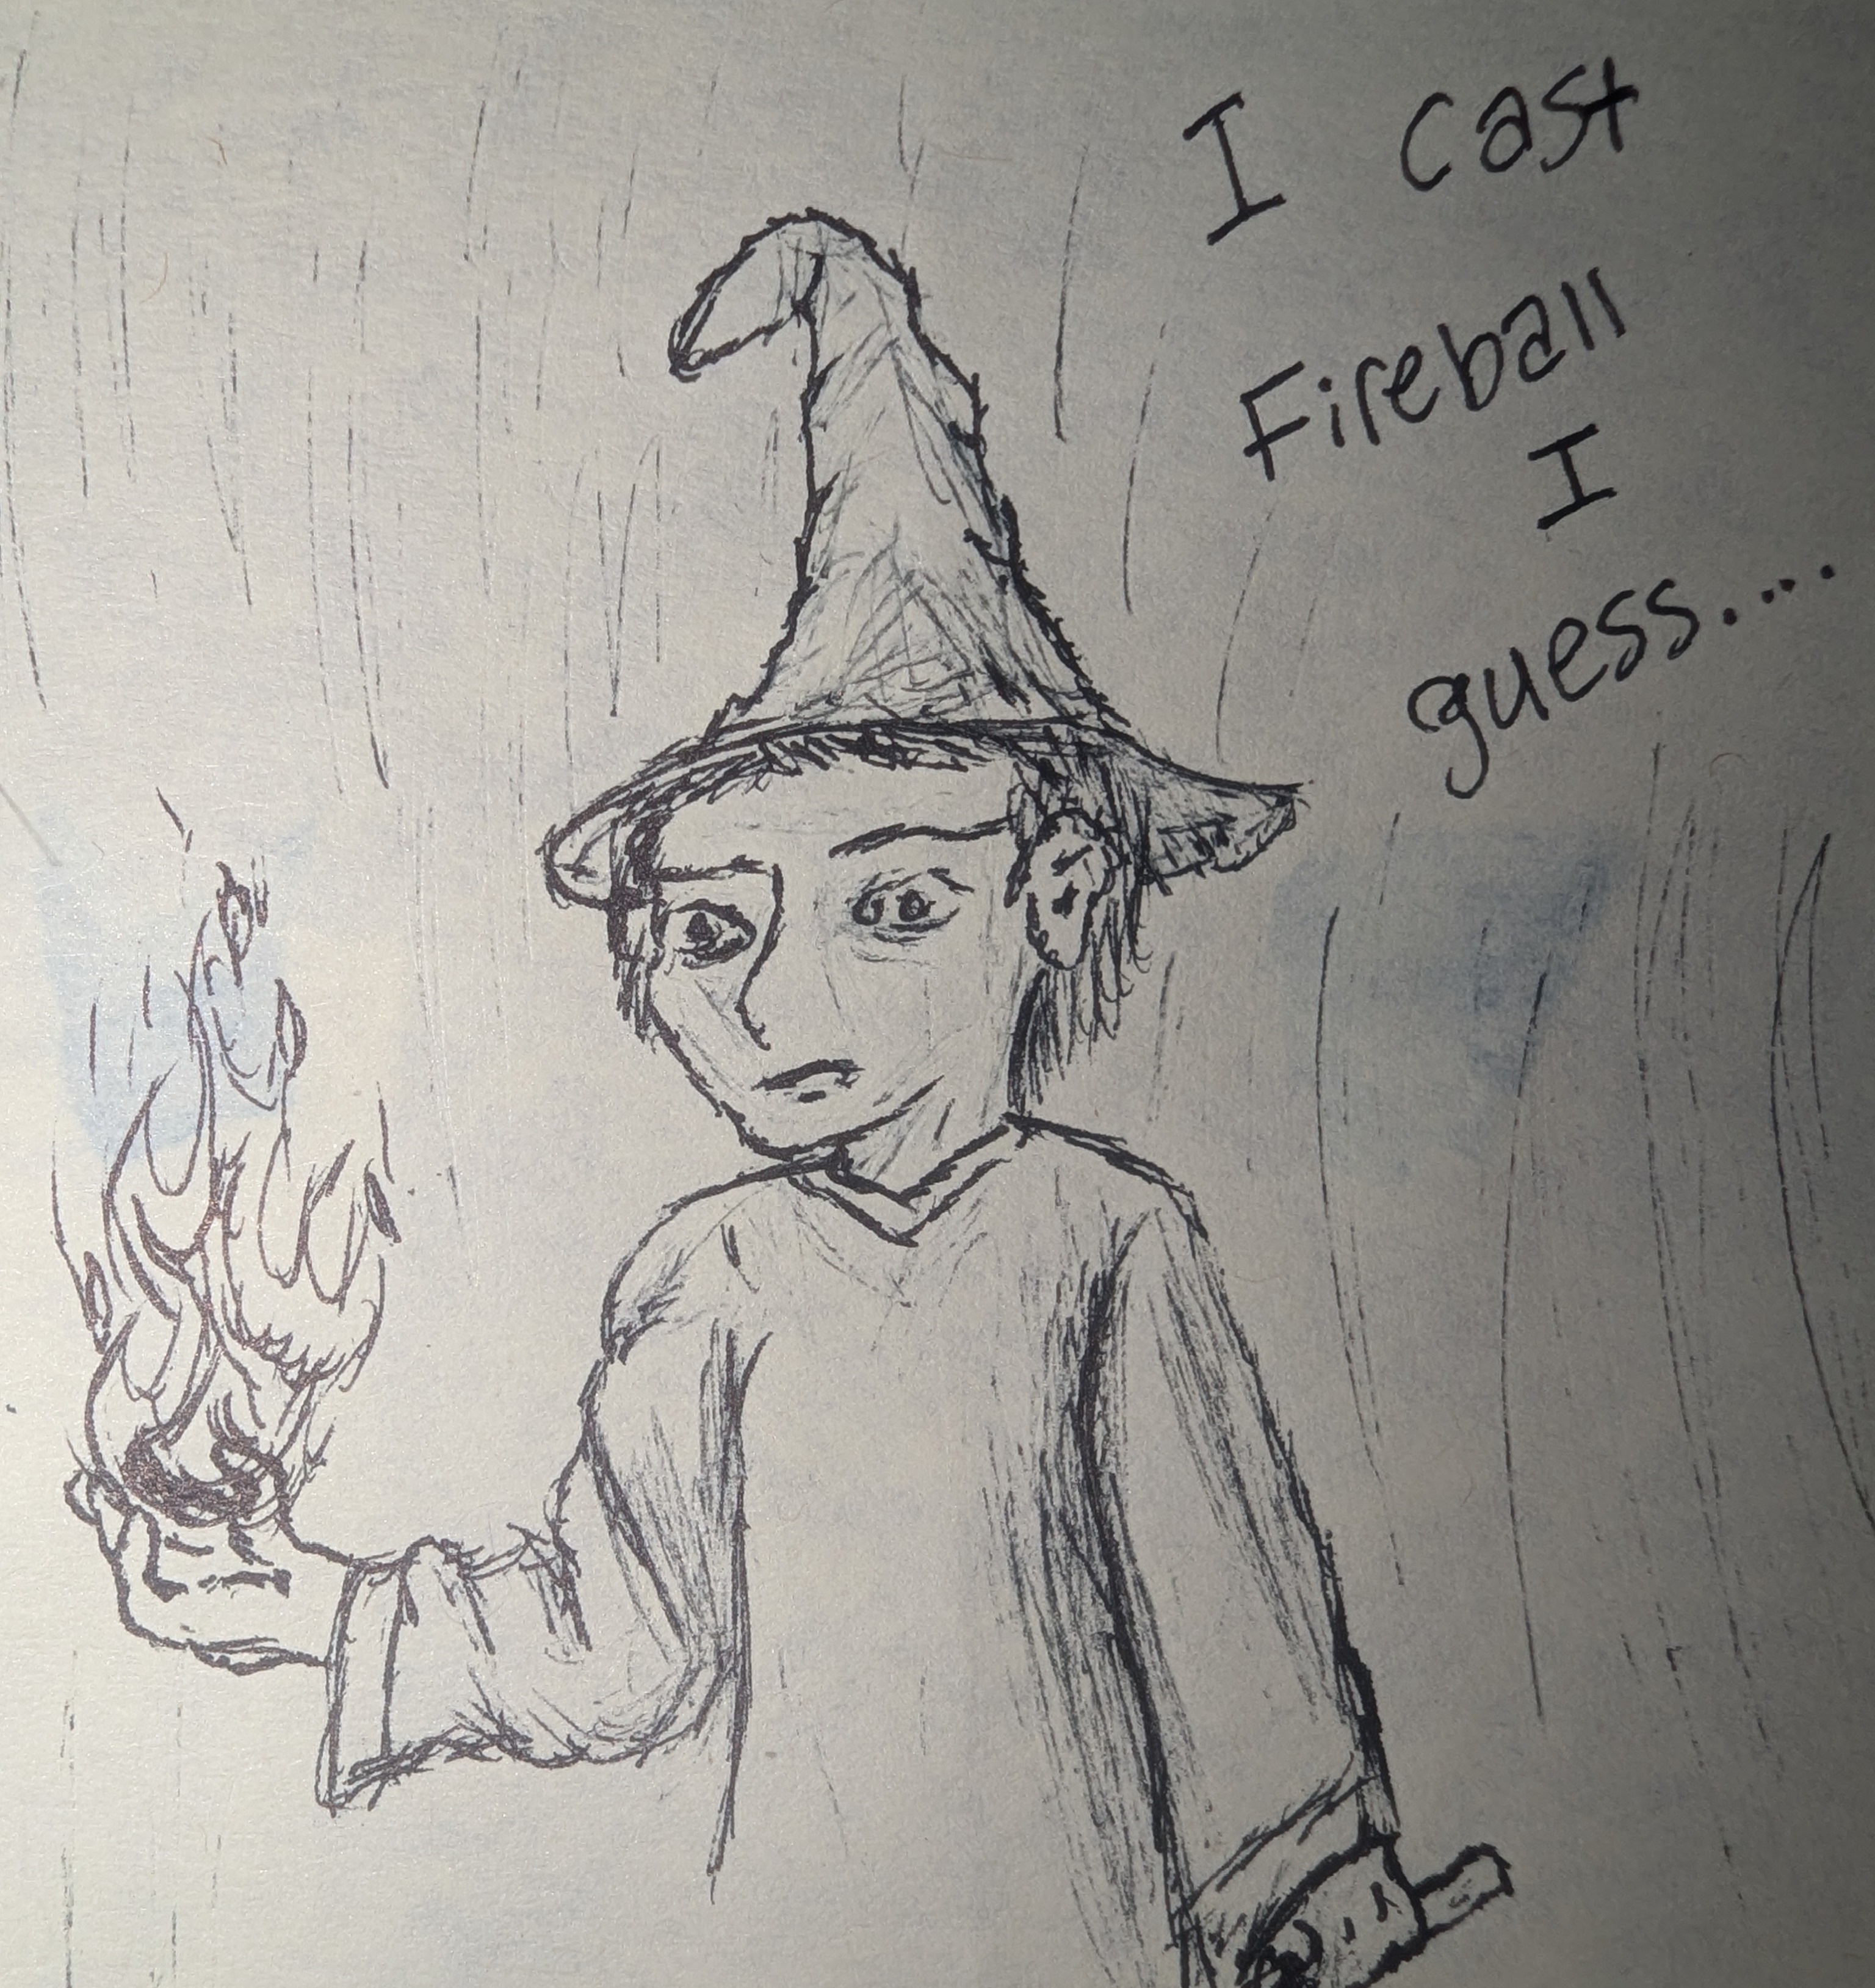 I cast
Fireball
I
guess....